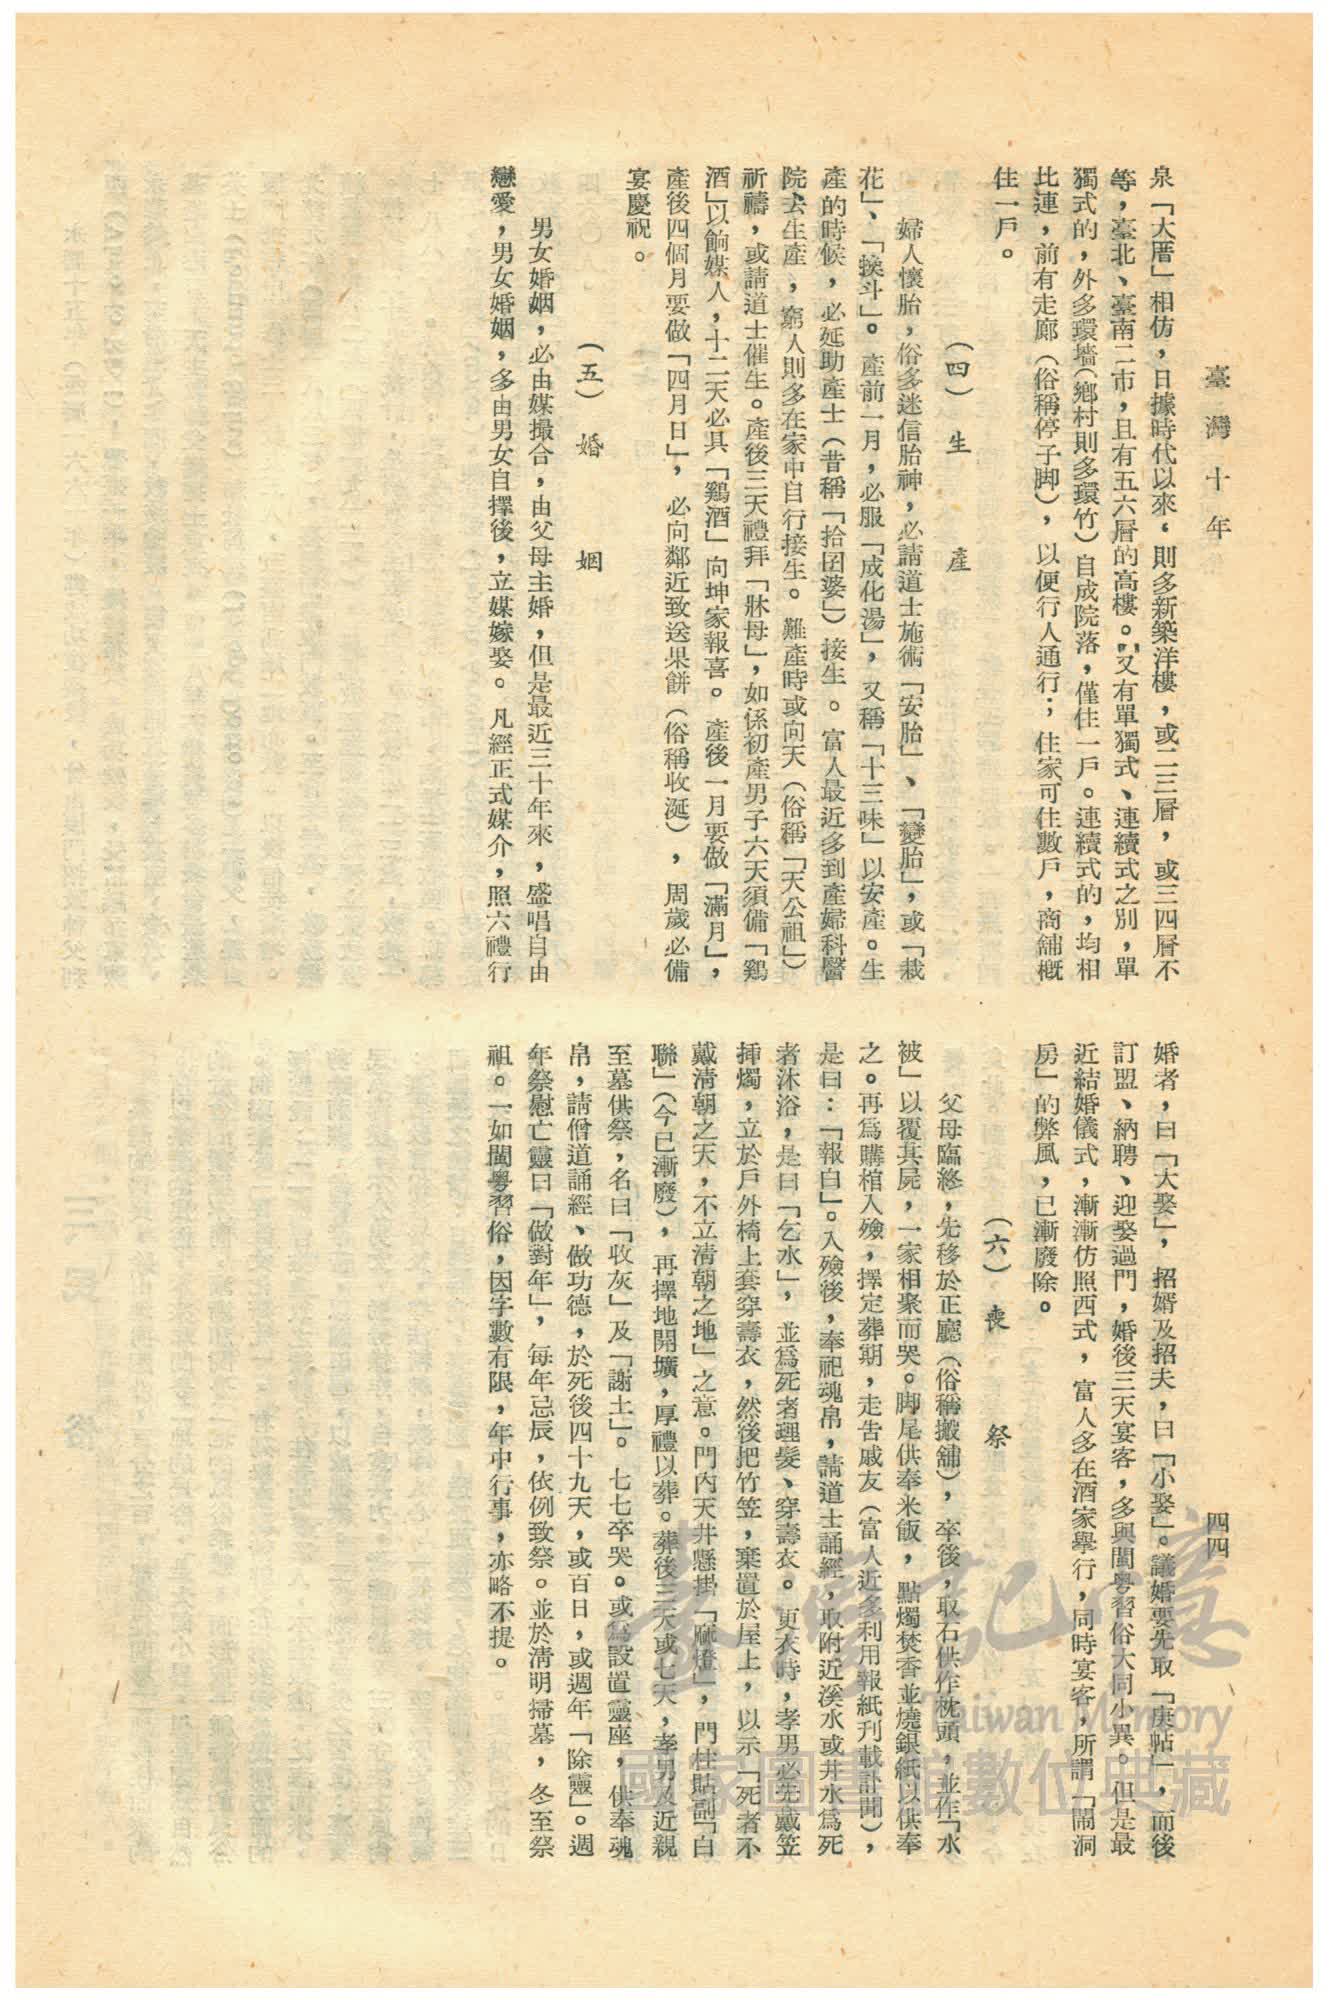 臺灣十年
四四
泉「大厝」相仿，日據時代以來，則多新築洋樓，或二三層，或三四層不
等，臺北、臺南二市，且有五六層的高樓。又有單獨式、連續式之別，單
獨式的，外多環墻（鄉村則多環竹）自成院落，僅住一戶。連續式的，均相
比連，前有走廊（俗稱停子脚），以便行人通行；住家可住數戶，商舖概
住一戶。
（四）生產
婦人懷胎，俗多迷信胎神，必請道士施術「安胎」、「變胎」，或「栽
花」、「換斗」。產前一月，必服「成化湯」，又稱「十三味」以安產。生
產的時候，必延助產士（昔稱「拾囝婆」）接生。富人最近多到產婦科醫
院去生產，窮人則多在家中自行接生。難產時或向天（俗稱「天公祖」）
祈禱，或請道士催生。產後三天禮拜「牀母」，如係初產男子六天須備「鷄
酒」以餉媒人，十二天必具「鷄酒」向坤家報喜。產後一月要做「滿月」，
產後四個月要做「四月日」，必向鄰近致送果餅（俗稱收涎），周歲必備
宴慶祝。
（五）婚姻
男女婚姻，必由媒撮合，由父母主婚，但是最近三十年來，盛唱自由
戀愛，男女婚姻，多由男女自擇後，立媒嫁娶。凡經正式媒介，照六禮行
婚者，曰「大娶」，招婿及招夫，曰「小娶」。議婚要先取「庚帖」，而後
訂盟、納聘、迎娶過門，婚後三天宴客，多與閩粵習俗大同小異。但是最
近結婚儀式，漸漸仿照西式，富人多在酒家舉行，同時宴客，所謂「鬧洞
房」的弊風，已漸廢除。
（六）喪祭
父母臨終，先移於正廳（俗稱搬舖），卒後，取石供作枕頭，並作「水
被」以覆其屍，一家相聚而哭。脚尾供奉米飯，點燭焚香並燒銀紙以供奉
之。再爲購棺入殮，擇定葬期，走告戚友（富人近多利用報紙刊載訃聞），
是曰：「報白」。入殮後，奉祀魂帛，請道士誦經，取附近溪水或井水爲死
者沐浴，是曰「乞水」，並爲死者理髮、穿壽衣。更衣時，孝男必先戴笠
揷燭，立於戶外椅上套穿壽衣，然後把竹笠，棄置於屋上，以示「死者不
戴淸朝之天，不立淸朝之地」之意。門內天井懸掛「麻燈」，門柱貼副「白
聯」（今已漸廢），再擇地開壙，厚禮以葬。葬後三天或七天，孝男及近親
至墓供祭，名曰「收灰」及「謝土」。七七卒哭。或爲設置靈座，供奉魂
帛，請僧道誦經、做功德，於死後四十九天，或百日，或週年「除靈」。週
年祭慰亡靈曰「做對年」，每年忌辰，依例致祭。並於淸明掃墓，冬至祭
祖。一如閩粵習俗，因字數有限，年中行事，亦略不提。
臺灣記憶
Taiwan Memory
國家圖書館數位典藏